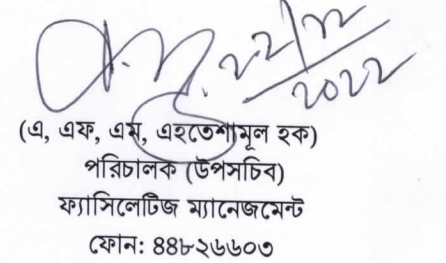 ২২/১২
২০২২
(এ, এফ, এম, এহতেশামূল হক)
পরিচালক (উপসচিব)
ফ্যাসিলেটিজ ম্যানেজমেন্ট
ফোন: ৪৪৮২৬৬০৩